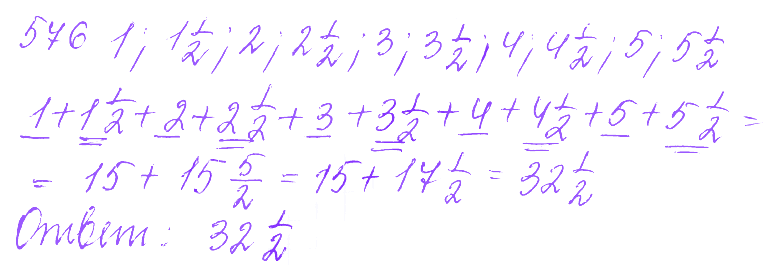 576 1; 1 1/2; 2; 2 1/2; 3; 3 1/2; 4; 4 1/2; 5; 5 1/2
1 + 1 1/2 + 2 + 2 1/2 + 3 + 3 1/2 + 4 + 4 1/2 + 5 + 5 1/2 =
= 15 + 15 5/2 = 15 + 17 1/2 = 32 1/2
Ответ: 32 1/2